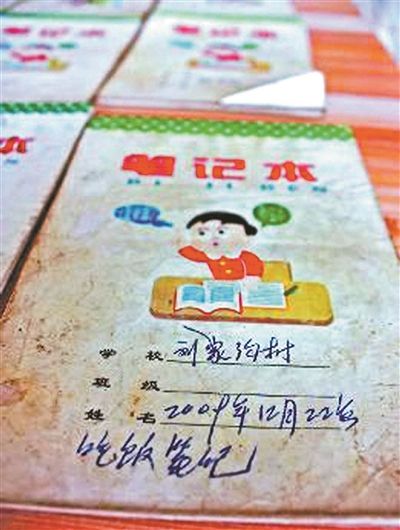 笔记本
BI JI BEN
学 校 刘家沟村
班 级
姓 名 2009年12月22
吃饭笔记